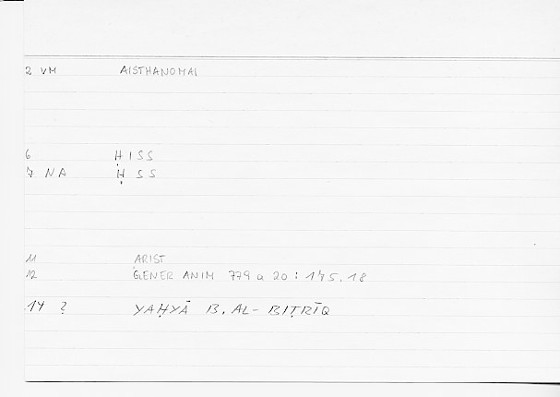 2 VM AISTHANOMAI
6 ḤISS
7 NA Ḥ SS
11 ARIST
12 GENER ANIM 779 a 20 : 175.18
14 ? YAḤYĀ B. AL-BIṬRĪQ